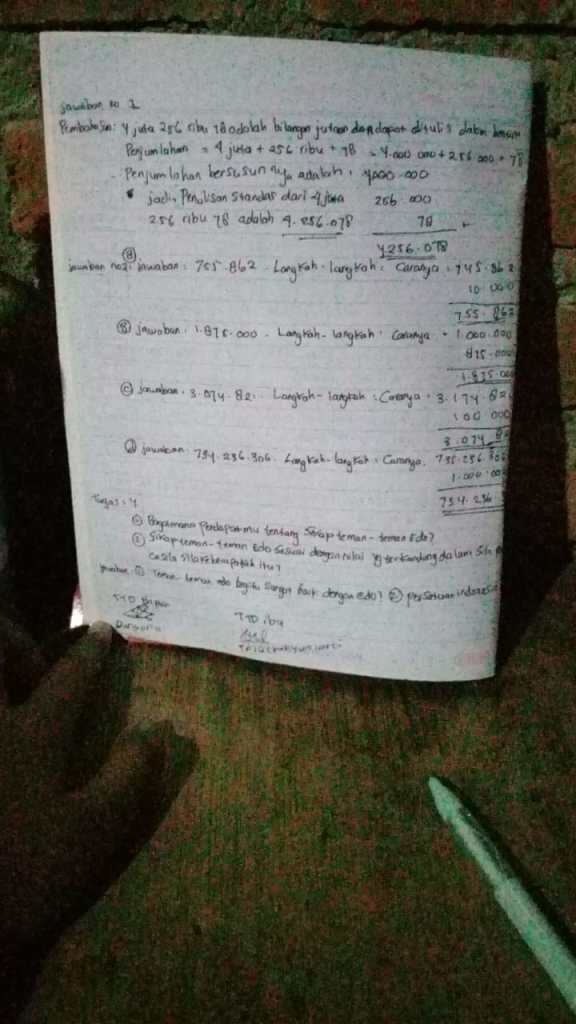 jawaban no 1
Pembahasan: 4 juta 256 ribu 78 adalah bilangan jutaan dan dapat ditulis dalam bentuk
Penjumlahan = 4 juta + 256 ribu + 78 = 4.000.000 + 256.000 + 78
Penjumlahan bersusun nya adalah : 4.000.000
jadi, Penulisan Standar dari 4 juta 256.000
256 ribu 78 adalah 4.256.078 78 +
4.256.078
jawaban no 2: (A) jawaban : 755.862 . Langkah-langkah : Caranya : 745.862
10.000
755.862
(B) jawaban : 1.875.000 . Langkah-langkah : Caranya : 1.000.000
875.000
1.875.000
(C) jawaban . 3.074.821 . Langkah-langkah : Caranya : 3.174.821
100.000
3.074.82
(D) jawaban . 734.236.306 . Langkah-langkah : Caranya . 735.236.306
1.000.000
734.236
Tugas : 4
(1) Bagaimana Pendapat mu tentang Sikap teman-teman Edo?
(2) Sikap teman-teman Edo sesuai dengan nilai yg terkandung dalam Sila
casila sila keberapakah itu?
jawaban. (1) Teman-teman edo begitu Sangat baik dengan edo? (2) persatuan indonesia
TTD
TTD ibu